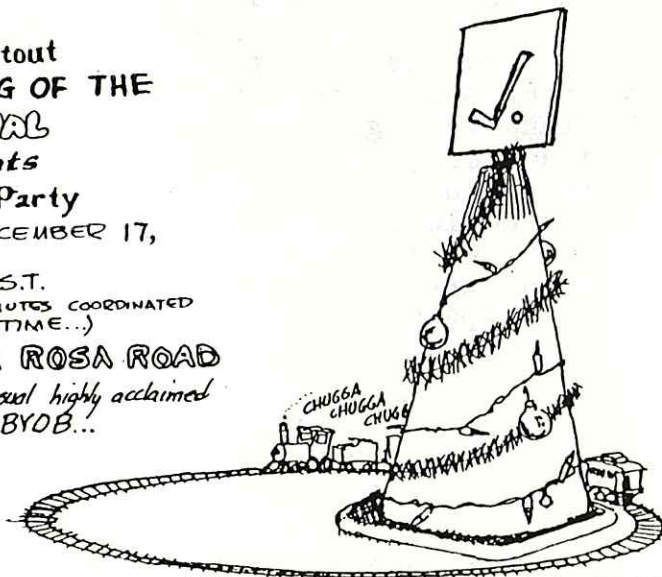 tout
G OF THE
AL
nts
Party
CEMBER 17,
S.T.
UTES COORDINATED
TIME...)
ROSA ROAD
sual highly acclaimed
BYOB...
CHUGGA
CHUGGA
CHUGG